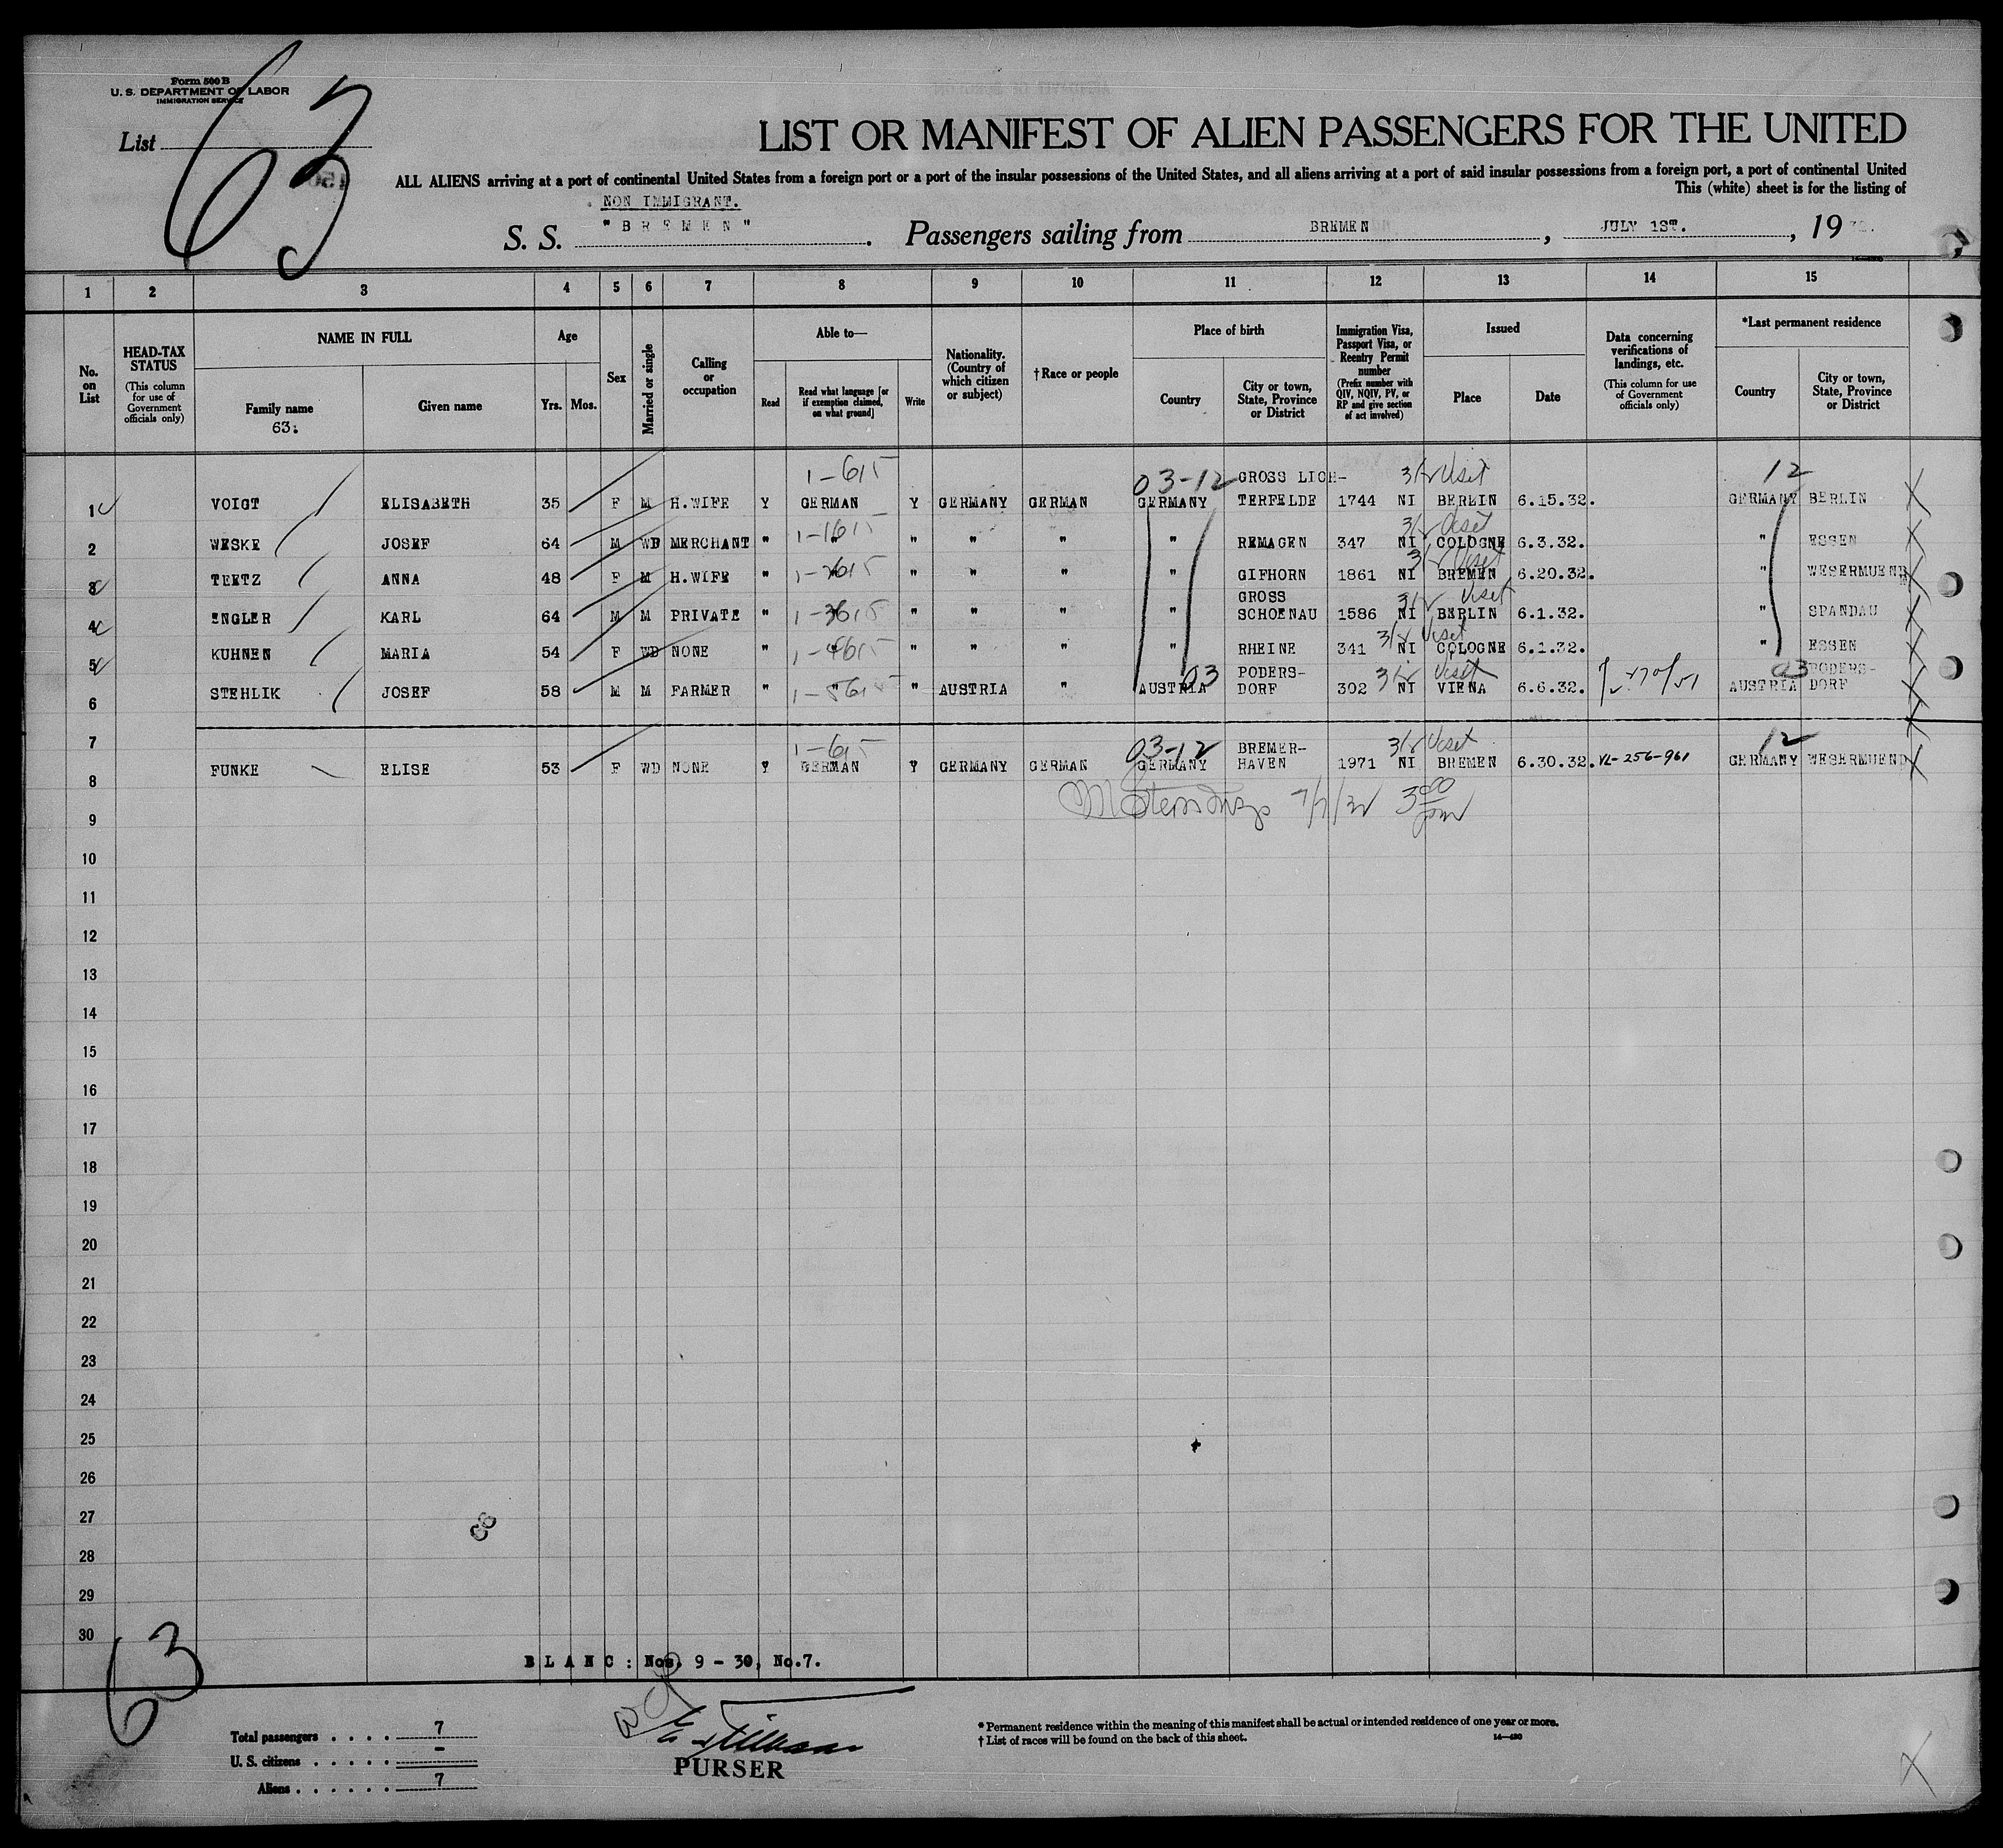 Form 500 B
U. S. DEPARTMENT OF LABOR
IMMIGRATION SERVICE
List 63
LIST OR MANIFEST OF ALIEN PASSENGERS FOR THE UNITED
ALL ALIENS arriving at a port of continental United States from a foreign port or a port of the insular possessions of the United States, and all aliens arriving at a port of said insular possessions from a foreign port, a port of continental United
This (white) sheet is for the listing of
NON IMMIGRANT.
S. S. "BREMEN". Passengers sailing from BREMEN, JULY 1ST., 1932.
1 2 3 4 5 6 7 8 9 10 11 12 13 14 15
No. on List
HEAD-TAX STATUS (This column for use of Government officials only)
NAME IN FULL
Family name
63:
Given name
Age
Yrs. Mos.
Sex
Married or single
Calling or occupation
Able to—
Read
Read what language [or if exemption claimed, on what ground]
Write
Nationality. (Country of which citizen or subject)
†Race or people
Place of birth
Country
City or town, State, Province or District
Immigration Visa, Passport Visa, or Reentry Permit number (Prefix number with QIV, NQIV, PV, or RP and give section of act involved)
Issued
Place
Date
Data concerning verifications of landings, etc. (This column for use of Government officials only)
*Last permanent residence
Country
City or town, State, Province or District
1-615 03-12 GROSS LICH- 3/2 Visit 12
1 VOIGT ELISABETH 35 F M H.WIFE Y GERMAN Y GERMANY GERMAN GERMANY TERFELDE 1744 NI BERLIN 6.15.32. GERMANY BERLIN
1-1615 3/2 Visit
2 WESKE JOSEF 64 M WD MERCHANT " " " " " " REMAGEN 347 NI COLOGNE 6.3.32. " ESSEN
1-2615 3/2 Visit
3 TEETZ ANNA 48 F M H.WIFE " " " " " " GIFHORN 1861 NI BREMEN 6.20.32. " WESERMUEND
GROSS 3/2 Visit
4 ENGLER KARL 64 M M PRIVATE " 1-3615 " " " " SCHOENAU 1586 NI BERLIN 6.1.32. " SPANDAU
3/2 Visit
5 KUHNEN MARIA 54 F WD NONE " 1-4615 " " " " RHEINE 341 NI COLOGNE 6.1.32. " ESSEN
03 PODERS- 3/2 Visit 03 PODERS-
6 STEHLIK JOSEF 58 M M FARMER " 1-5615 " AUSTRIA " AUSTRIA DORF 302 NI VIENA 6.6.32. AUSTRIA DORF
7
1-615 03-12 BREMER- 3/2 Visit 12
8 FUNKE ELISE 53 F WD NONE Y GERMAN Y GERMANY GERMAN GERMANY HAVEN 1971 NI BREMEN 6.30.32. VL-256-961 GERMANY WESERMUEND
7/7/32 3 00 pm
9
10
11
12
13
14
15
16
17
18
19
20
21
22
23
24
25
26
27
28
29
30
63
BLANC: Nos. 9 - 30, No.7.
Total passengers . . . . 7
U. S. citizens . . . . . -
Aliens . . . . . . 7
PURSER
* Permanent residence within the meaning of this manifest shall be actual or intended residence of one year or more.
† List of races will be found on the back of this sheet.
14—430